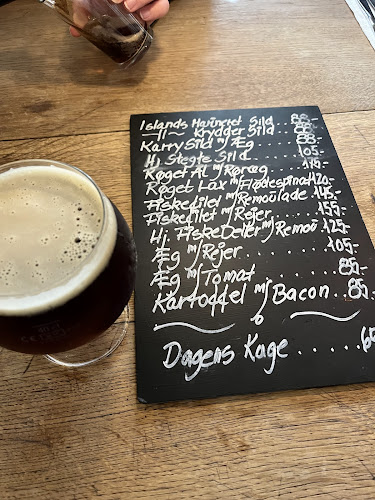 Islands Marineret Sild .. 88.-
-11- Krydder Sild ... 88.-
Karry Sild m/Æg ... 88.-
Hj Stegte Sild ...... 105.-
Røget Ål m/Røræg ... 170.-
Røget Lax m/Flødespinat 120.-
Fiskefilet m/Remoulade 115.-
Fiskefilet m/Rejer ..... 155.-
Hj Fiske Deller m/Remo 125.-
Æg m/Rejer ........ 105.-
Æg m/Tomat ........ 85.-
Kartoffel m/Bacon .. 85.-
Dagens Kage ......